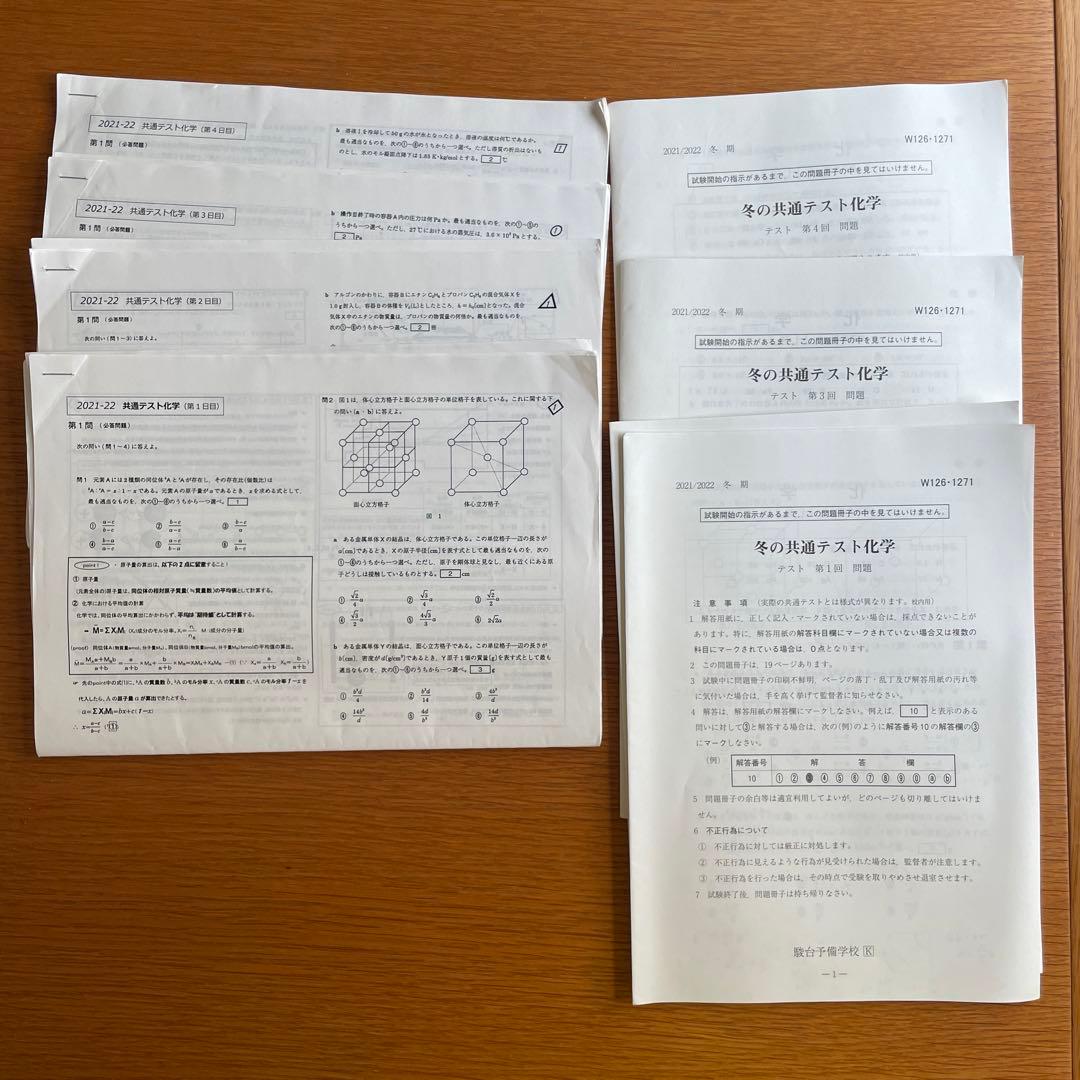 2021-22 共通テスト化学(第4日目)
第1問 (必答問題)
b 溶液Ⅰを冷却して50gの水が氷となったとき,溶液の温度は何℃であるか。
最も適当なものを,次の①~⑥のうちから一つ選べ。ただし溶質の析出はないも
のとし,水のモル凝固点降下は1.85 K・kg/molとする。 2 ℃
2021-22 共通テスト化学(第3日目)
第1問 (必答問題)
うちから一つ選べ。ただし,27℃における水の蒸気圧は,3.6×10³ Paとする。
2 Pa
2021-22 共通テスト化学(第2日目)
第1問 (必答問題)
次の問い(問1~3)に答えよ。
b アルゴンのかわりに,容器BにエチンC₂H₂とプロパンC₃H₈の混合気体Xを
1.0g封入し,容器Bの体積をV₂(L)としたところ,h=h₂(cm)となった。混合
気体X中のエチンの物質量は,プロパンの物質量の何倍か。最も適当なものを,
次の①~⑥のうちから一つ選べ。 2 倍
2021-22 共通テスト化学(第1日目)
第1問 (必答問題)
次の問い(問1~4)に答えよ。
問1 元素Aには2種類の同位体ᵇAとᶜAが存在し,その存在比(個数比)は
ᵇA:ᶜA=x:1-xである。元素Aの原子量がaであるとき,xを求める式として,
最も適当なものを,次の①~⑥のうちから一つ選べ。 1
① a-c/b-c ② b-c/a-c ③ b-c/a
④ a-b/c-b ⑤ c-a/b-a ⑥ a-c/b
point! ・原子量の算出は,以下の2点に留意すること!
① 原子量
(元素全体の)原子量は,同位体の相対原子質量(≒質量数)の平均値として計算する。
② 化学における平均値の計算
化学では,同位体の平均算出にかかわらず,平均は"期待値"として計算する。
(proof) 同位体A(物質量amol,分子量Mₐ),同位体B(物質量bmol,分子量M_b)の平均値の算出。
☞ 先のpoint中の式(1)に,ᵇAの質量数b,ᵇAのモル分率x,ᶜAの質量数c,ᶜAのモル分率1-xを
代入したら,Aの原子量aが算出できたとする。
a=ΣXᵢMᵢ=bx+c(1-x)
∴ x=a-c/b-c (①)
問2 図1は,体心立方格子と面心立方格子の単位格子を表している。これに関する下
の問い(a・b)に答えよ。
面心立方格子 体心立方格子
図 1
a ある金属単体Xの結晶は,体心立方格子である。この単位格子一辺の長さが
a〔cm〕であるとき,Xの原子半径〔cm〕を表す式として最も適当なものを,次の
①~⑥のうちから一つ選べ。ただし,原子を剛体球と見なし,最も近くにある原
子どうしは接触しているものとする。 2 cm
① √2/4 a ② √3/4 a ③ √2/2 a
④ √3/2 a ⑤ 4√3/3 a ⑥ 2√2a
b ある金属単体Yの結晶は,面心立方格子である。この単位格子一辺の長さが
b〔cm〕,密度がd〔g/cm³〕であるとき,Y原子1個の質量〔g〕を表す式として最も
適当なものを,次の①~⑥のうちから一つ選べ。 3 g
① b³d/4 ② b³d/14 ③ 4b³/d
④ 14b³/d ⑤ 4d/b³ ⑥ 14d/b³
2021/2022 冬 期
W126・1271
試験開始の指示があるまで,この問題冊子の中を見てはいけません。
冬の共通テスト化学
テスト 第4回 問題
2021/2022 冬 期
W126・1271
試験開始の指示があるまで,この問題冊子の中を見てはいけません。
冬の共通テスト化学
テスト 第3回 問題
2021/2022 冬 期
W126・1271
試験開始の指示があるまで,この問題冊子の中を見てはいけません。
冬の共通テスト化学
テスト 第1回 問題
注 意 事 項 (実際の共通テストとは様式が異なります。校内用)
1 解答用紙に,正しく記入・マークされていない場合は,採点できないことが
あります。特に,解答用紙の解答科目欄にマークされていない場合又は複数の
科目にマークされている場合は,0点となります。
2 この問題冊子は,19ページあります。
3 試験中に問題冊子の印刷不鮮明,ページの落丁・乱丁及び解答用紙の汚れ等
に気付いた場合は,手を高く挙げて監督者に知らせなさい。
4 解答は,解答用紙の解答欄にマークしなさい。例えば, 10 と表示のある
問いに対して③と解答する場合は,次の(例)のように解答番号10の解答欄の③
にマークしなさい。
(例) 解答番号 解 答 欄
10 ① ② ❸ ④ ⑤ ⑥ ⑦ ⑧ ⑨ ⓪ ⓐ ⓑ
5 問題冊子の余白等は適宜利用してよいが,どのページも切り離してはいけま
せん。
6 不正行為について
① 不正行為に対しては厳正に対処します。
② 不正行為に見えるような行為が見受けられた場合は,監督者が注意します。
③ 不正行為を行った場合は,その時点で受験を取りやめさせ退室させます。
7 試験終了後,問題冊子は持ち帰りなさい。
駿台予備学校 K
―1―